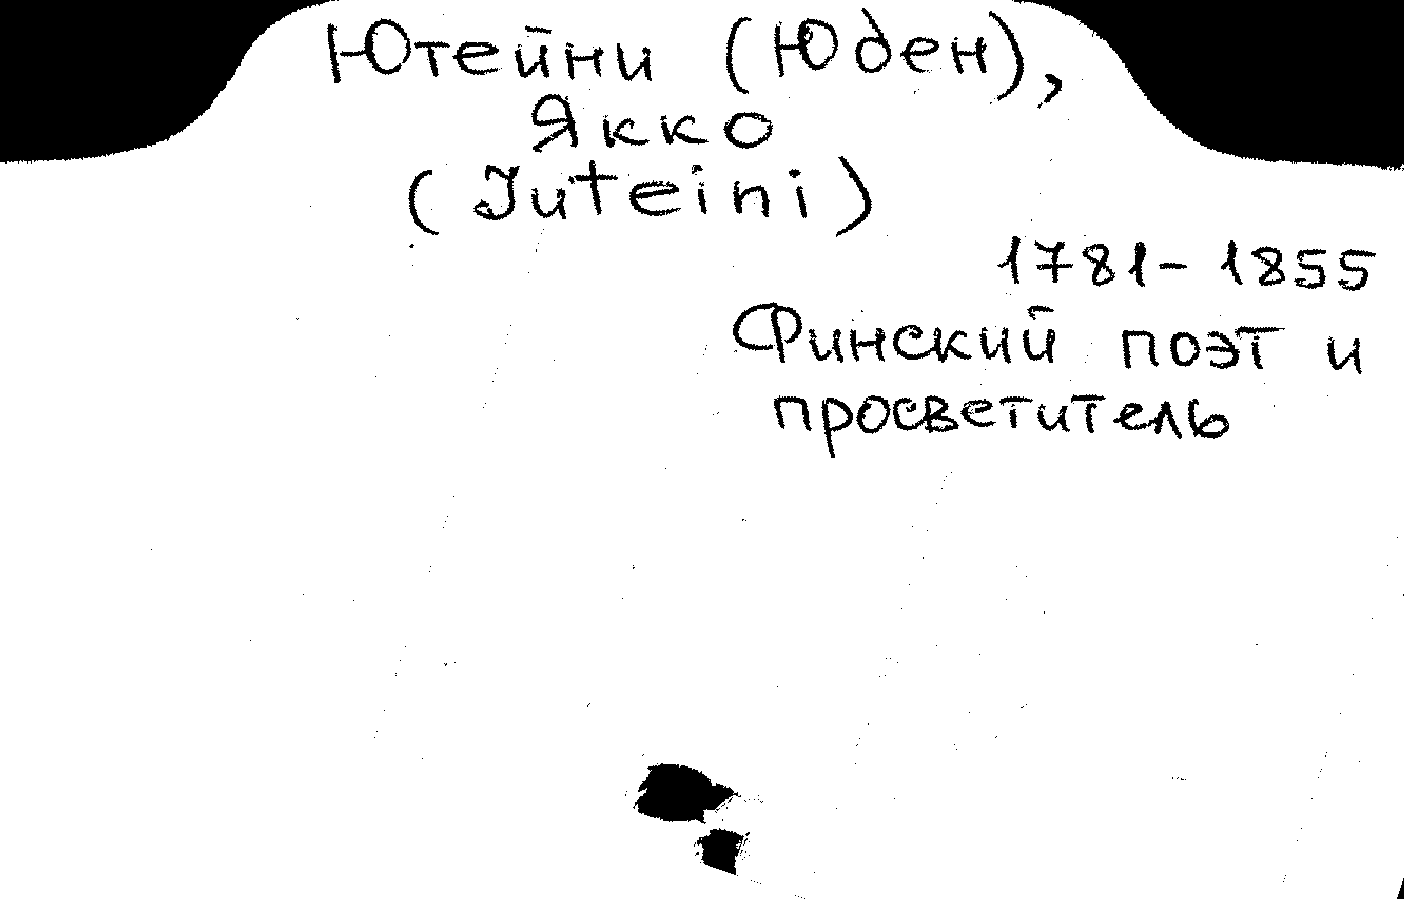 Ютейни (Юден),
Якко
(Juteini)
1781-1855
Финский поэт и
просветитель